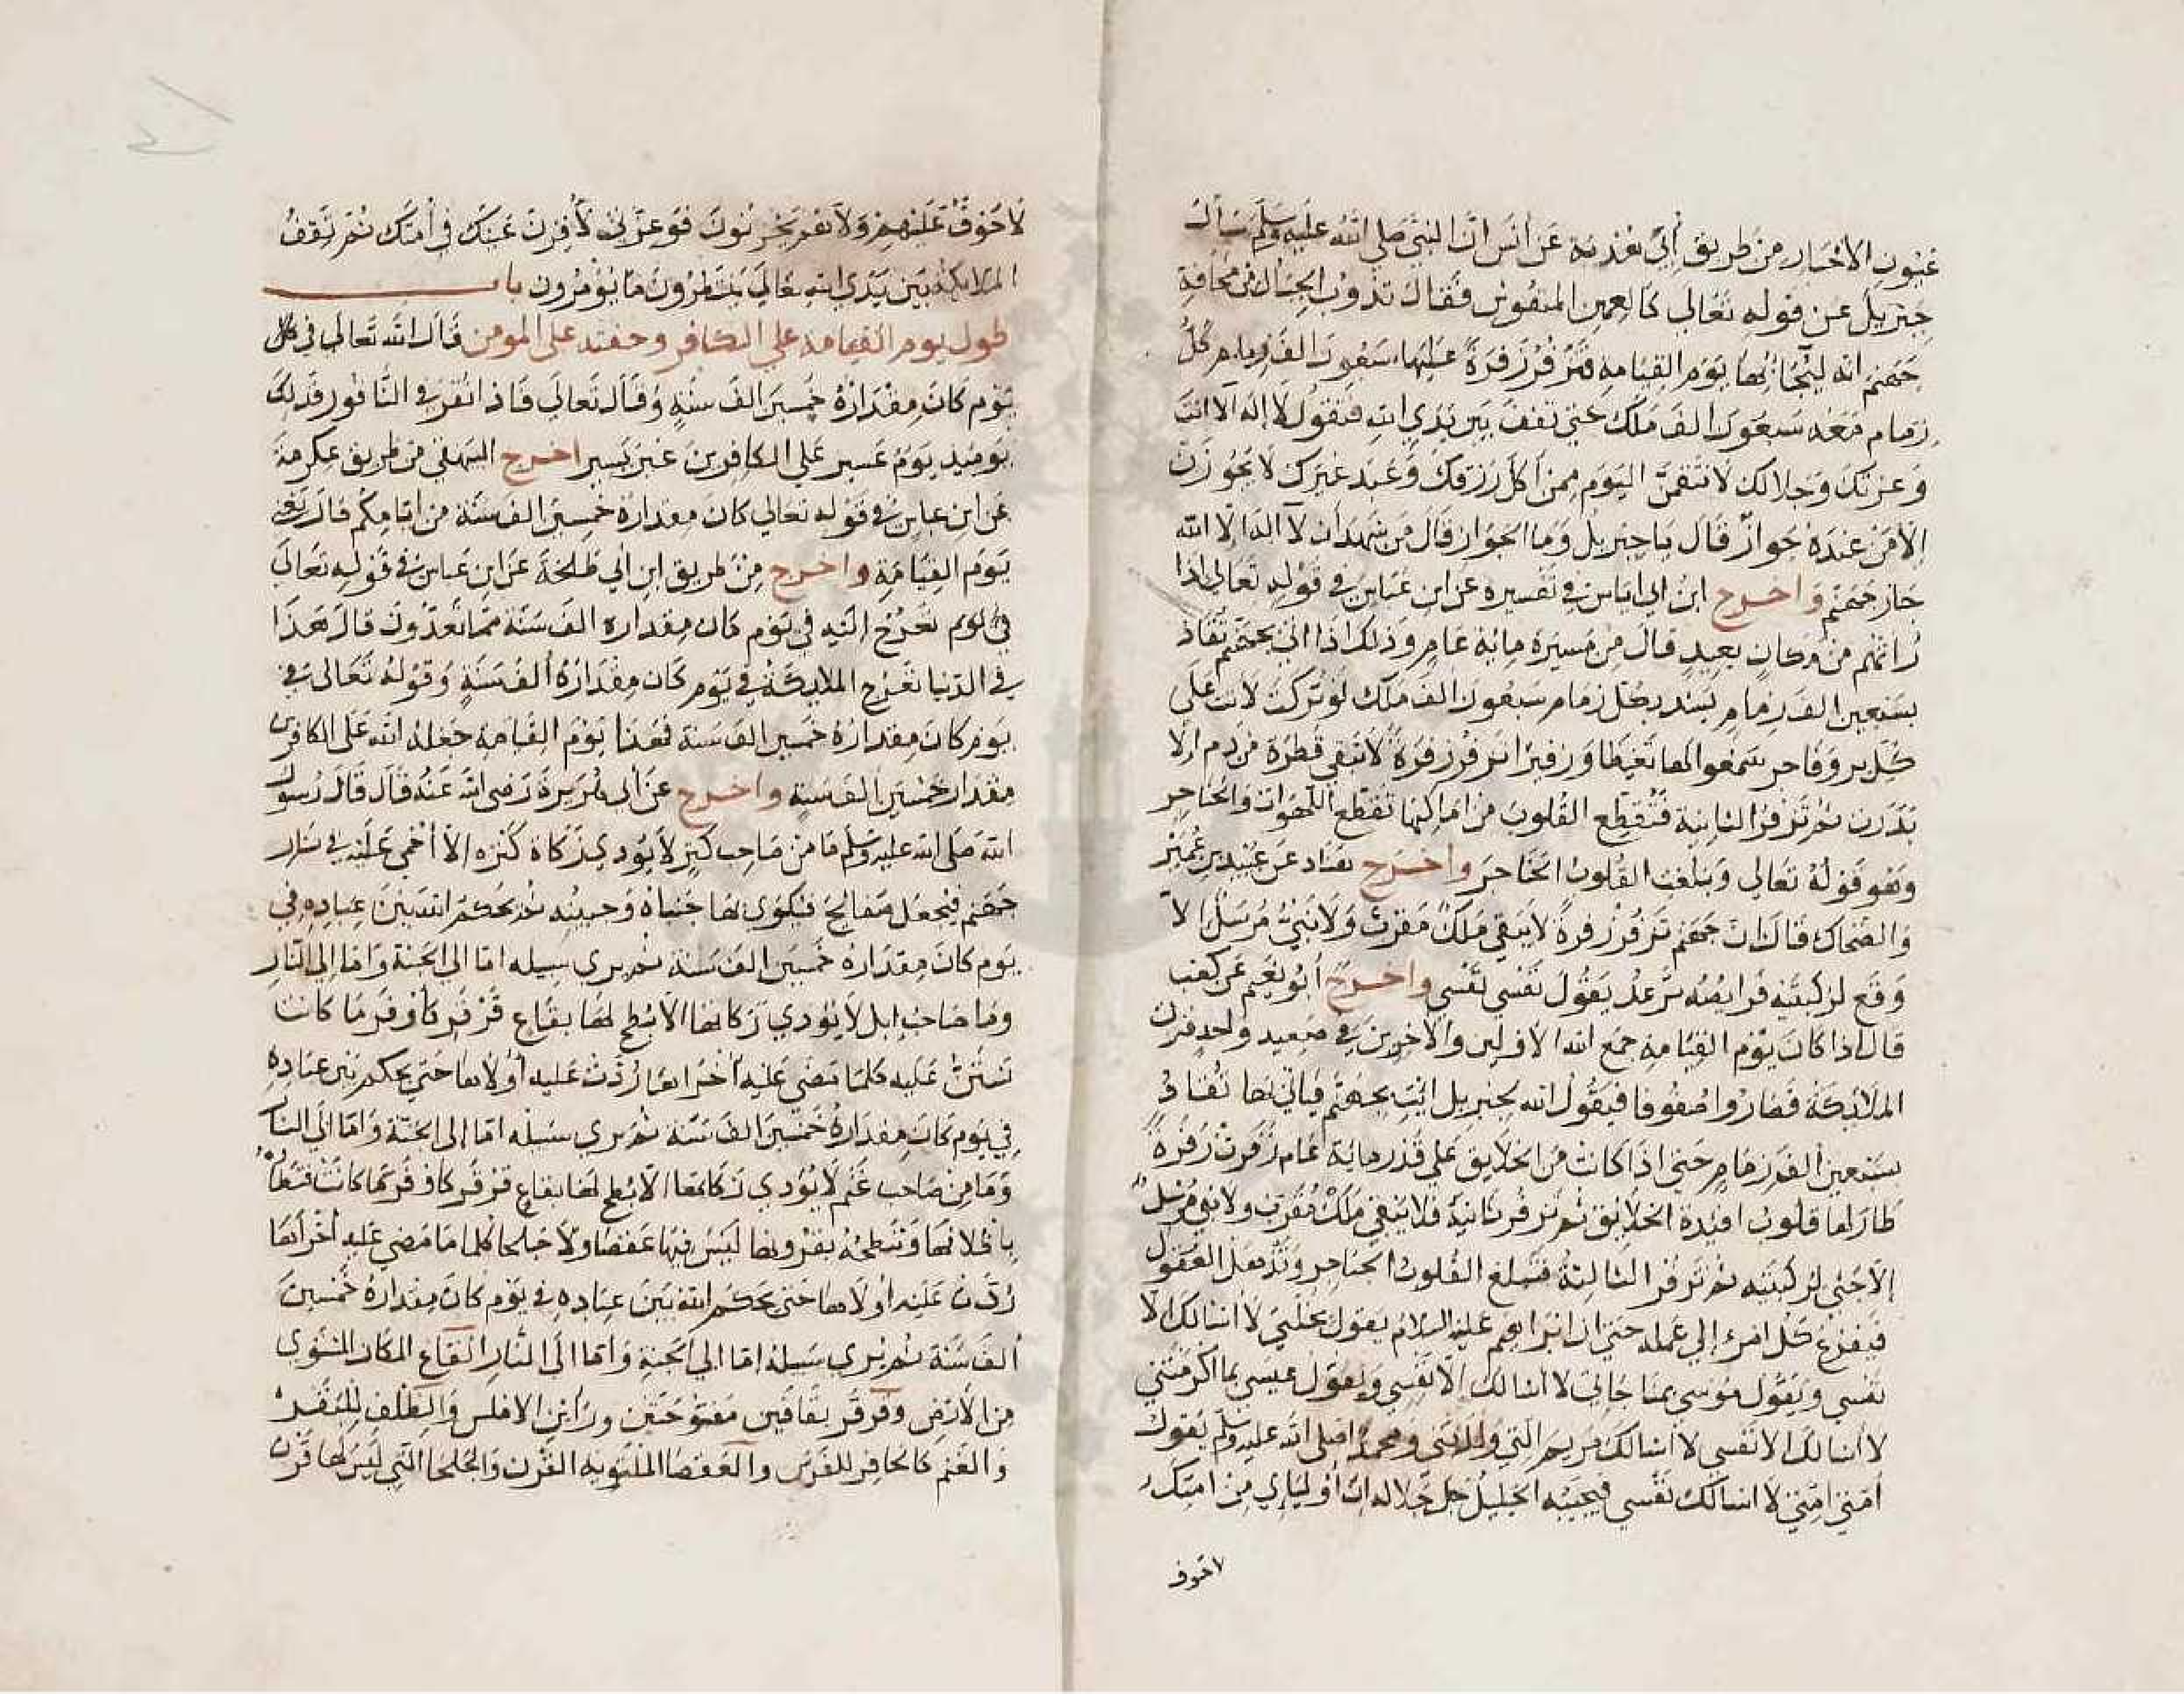 عيون الاخبار من طريق ابي هدبة عن انس ان النبي صلي الله عليه وسلم سال
جبريل عن قوله تعالي كالعهن المنفوش فقال تذوب الجبال من مخافة
جهنم انه ليجاء بها يوم القيامة فتزفر زفرة عليها سبعون الف زمام كل
زمام معه سبعون الف ملك حتي تقف بين يدي الله فتقول لا اله الا انت
وعزتك وجلالك لانتقمن اليوم ممن اكل رزقك وعبد غيرك لا يجوزن
الا من عنده جواز قال يا جبريل وما الجواز قال من شهد ان لا اله الا الله
جاز جهنم واخرج ابن ابي اياس في تفسيره عن ابن عباس في قوله تعالي اذا
راتهم من مكان بعيد قال من مسيرة مائة عام وذلك اذا اتي بجهنم تقاد
بسبعين الف زمام يشد بكل زمام سبعون الف ملك لو تركت لاتت علي
كل بر وفاجر سمعوا لها تغيظا وزفيرا تزفر زفرة لا تبقي قطرة من دم الا
بدرت ثم تزفر الثانية فتقطع القلوب من اماكنها تقطع اللهوات والحناجر
وهو قوله تعالي وبلغت القلوب الحناجر واخرج هناد عن عبيد بن عمير
والضحاك قال ان جهنم تزفر زفرة لا يبقي ملك مقرب ولا نبي مرسل الا
وقع لركبتيه فرايصه ترعد يقول نفسي نفسي واخرج ابو نعيم عن كعب
قال اذا كان يوم القيامة جمع الله الاولين والاخرين في صعيد واحد فنزلت
الملائكة فصاروا صفوفا فيقول الله لجبريل ايت بجهنم فياتي بها تقاد
بسبعين الف زمام حتي اذا كانت من الخلايق علي قدر مائة عام زفرت زفرة
طار لها قلوب افيدة الخلايق ثم تزفر ثانية فلا يبقي ملك مقرب ولا نبي مرسل
الا جثي لركبتيه ثم تزفر الثالثة فتبلغ القلوب الحناجر وتذهل العقول
فيفزع كل امرء الي عمله حتي ان ابراهيم عليه السلام يقول بخلتي لا اسالك الا
نفسي ويقول موسي بمناجاتي لا اسالك الا نفسي ويقول عيسي بما اكرمتني
لا اسالك الا نفسي لا اسالك مريم التي ولدتني ومحمد صلي الله عليه وسلم يقول
امتي امتي لا اسالك نفسي فيجيبه الجليل جل جلاله ان اوليائي من امتك
لا خوف
لا خوف عليهم ولا هم يحزنون فوعزتي لاقرن عينك في امتك ثم تقف
الملايكة بين يدي الله تعالي ينتظرون ما يؤمرون باب
طول يوم القيامة علي الكافر وخفته علي المومن قال الله تعالي في كل
يوم كان مقداره خمسين الف سنة وقال تعالي فاذا نقر في الناقور فذلك
يوميذ يوم عسير علي الكافرين غير يسير اخرج البيهقي من طريق عكرمة
عن ابن عباس في قوله تعالي كان مقداره خمسين الف سنة من ايامكم قال يعني
يوم القيامة واخرج من طريق ابن ابي طلحة عن ابن عباس في قوله تعالي
في يوم تعرج اليه في يوم كان مقداره الف سنة مما تعدون قال هذا
في الدنيا تعرج الملايكة في يوم كان مقداره الف سنة وقوله تعالي في
يوم كان مقداره خمسين الف سنة فهذا يوم القيامة جعله الله علي الكافرين
مقدار خمسين الف سنة واخرج عن ابي هريرة رضي الله عنه قال قال رسول
الله صلي الله عليه وسلم ما من صاحب كنز لا يؤدي زكاة كنزه الا احمي عليه في نار
جهنم فيجعل صفايح فيكوي بها جنباه وجبينه ثم يحكم الله بين عباده في
يوم كان مقداره خمسين الف سنة ثم يري سبيله اما الي الجنة واما الي النار
وما صاحب ابل لا يؤدي زكاتها الا بطح لها بقاع قرقر كاوفر ما كانت
تستن عليه كلما مضي عليه اخراها ردت عليه اولاها حتي يحكم بين عباده
في يوم كان مقداره خمسين الف سنة ثم يري سبيله اما الي الجنة واما الي النار
وما من صاحب غنم لا يؤدي زكاتها الا بطح لها بقاع قرقر كاوفر ما كانت فتطاه
باظلافها وتنطحه بقرونها ليس فيها عقصا ولا جلحا كلما مضي عليه اخراها
ردت عليه اولاها حتي يحكم الله بين عباده في يوم كان مقداره خمسين
الف سنة ثم يري سبيله اما الي الجنة واما الي النار القاع المكان المستوي
من الارض وقرقر بقافين مفتوحتين ورايين الاملس والظلف للبقر
والغنم كالحافر للفرس والعقصا الملتوية القرن والجلحا التي ليس لها قرن